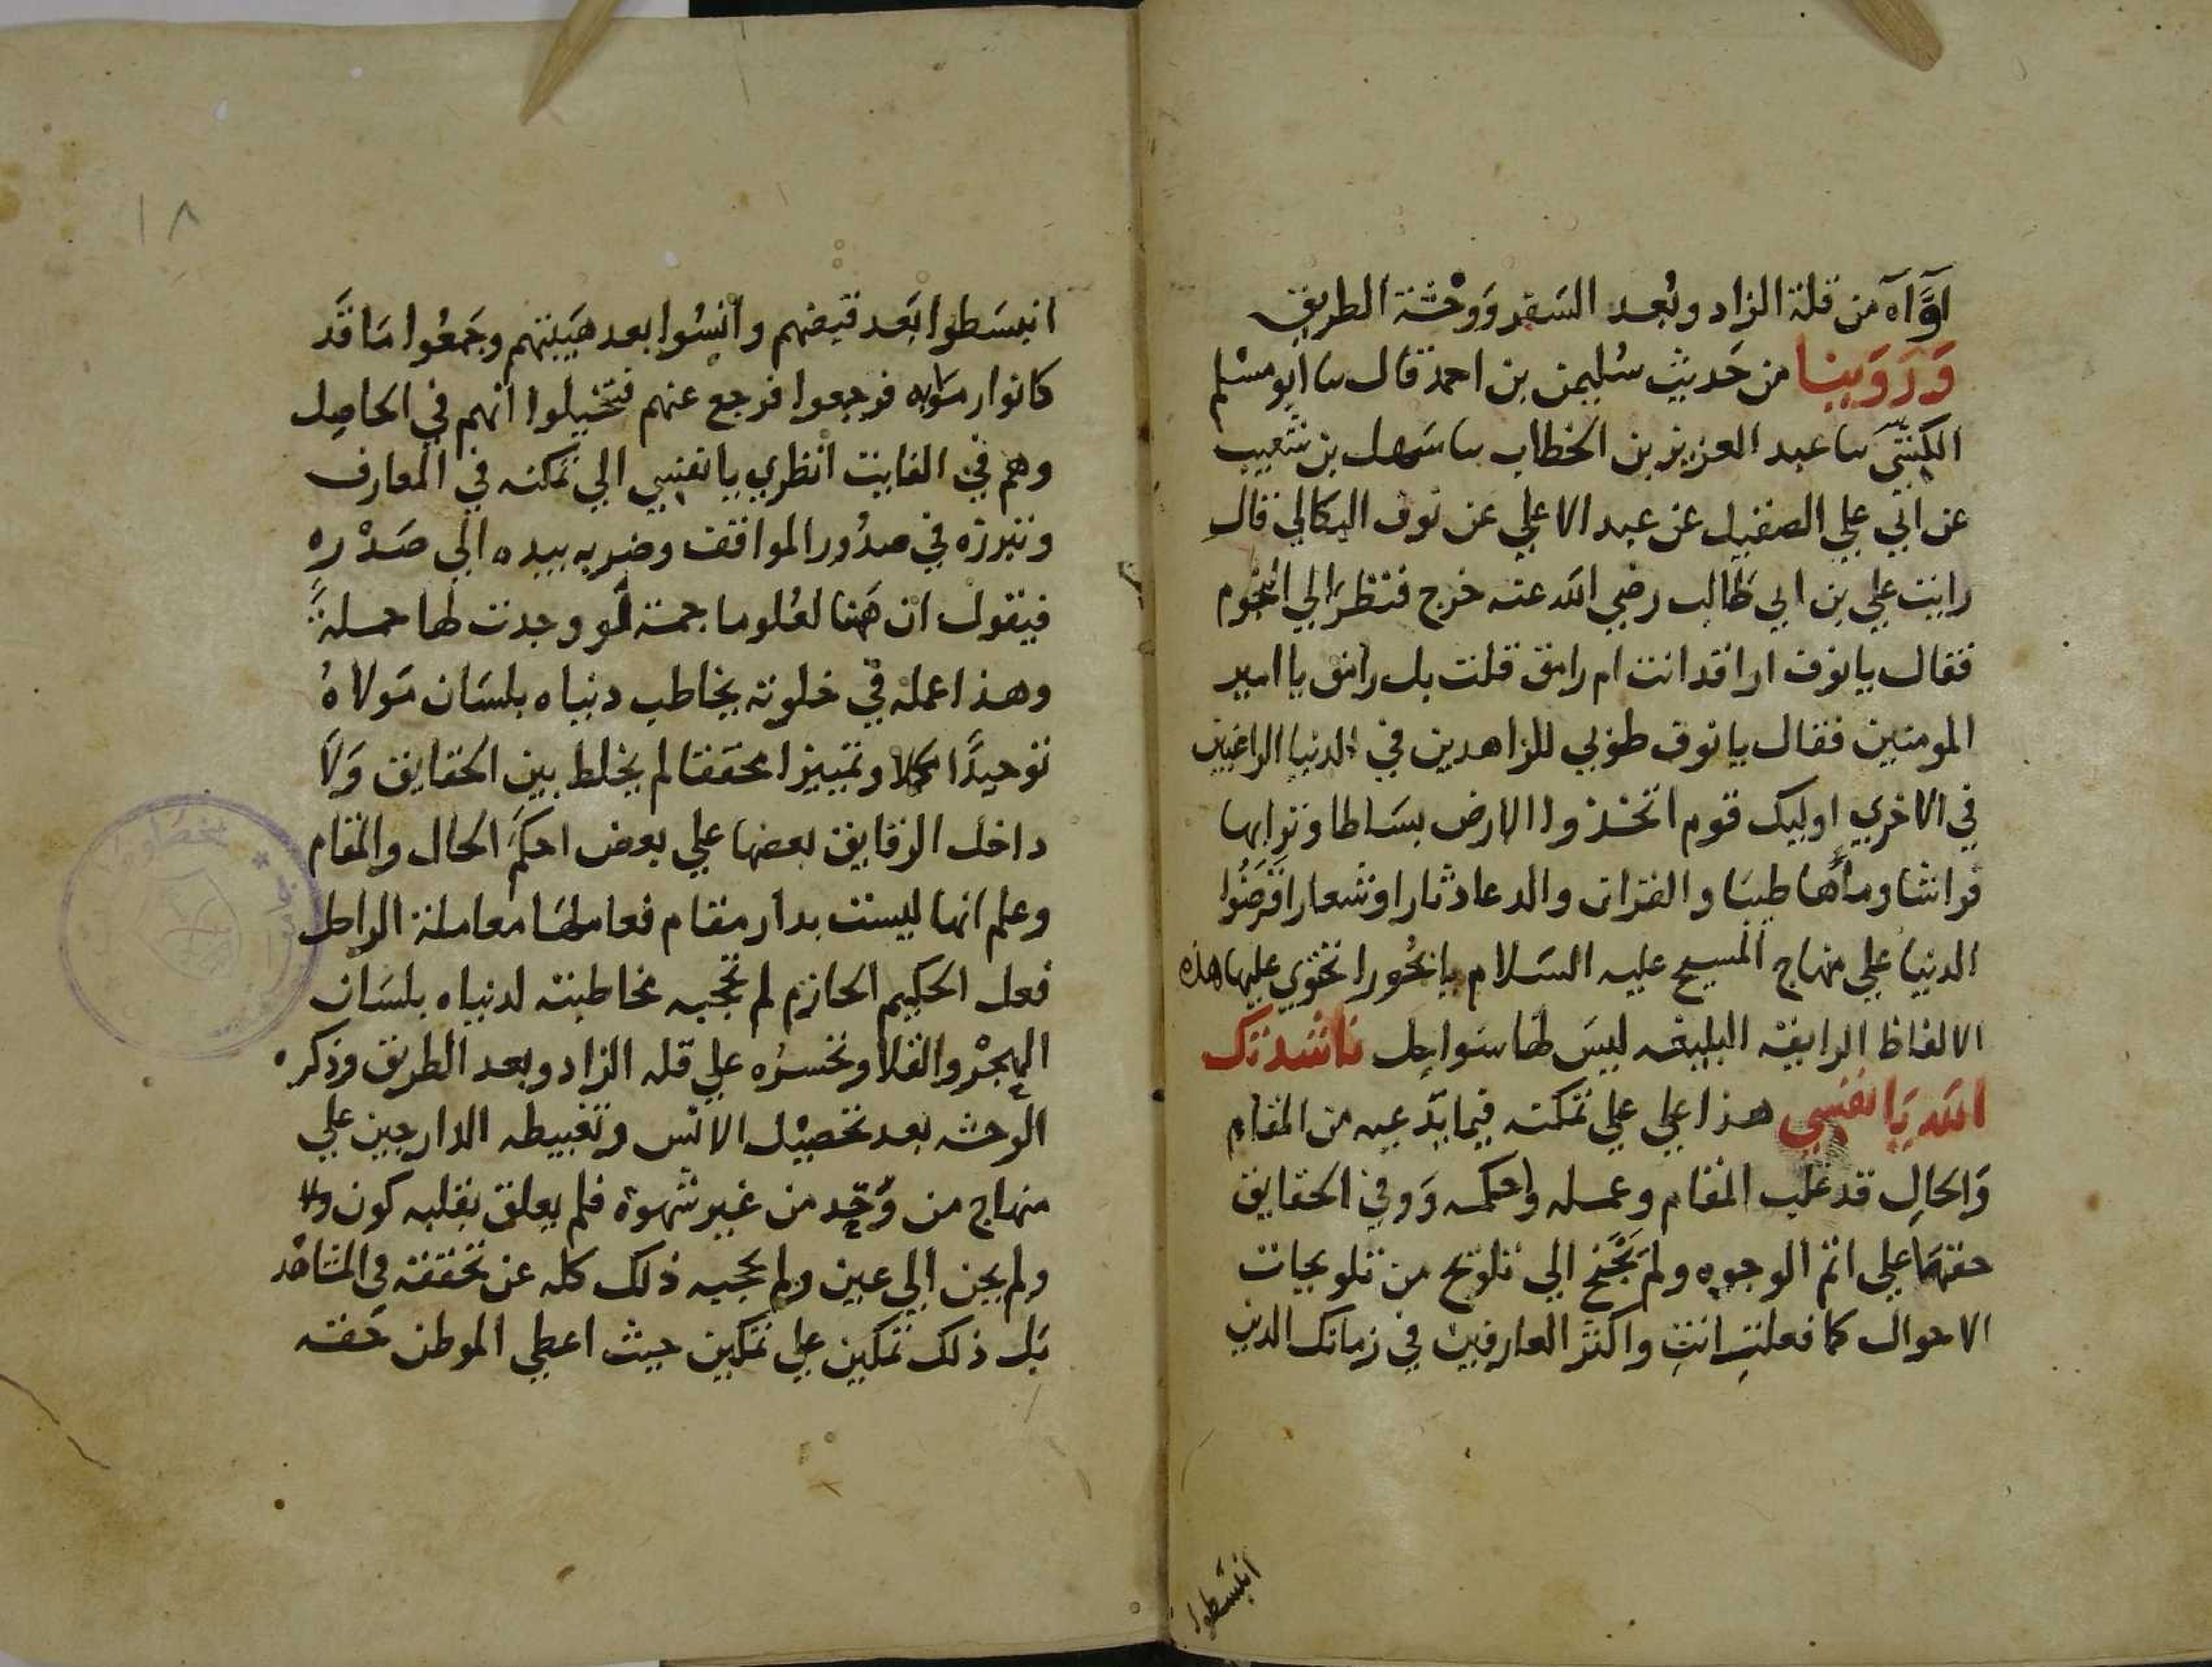 اوَّاه من قلة الزاد وبُعد السَفر وَوحْشة الطريق
وَرَوَينا من حَديث سُليمن بن احمد قال سا ابو مسْلم
الكَشِّي سا عبد العزيز بن الخطاب سا سَهل بن شعيب
عن ابي علي الصقيل عن عبد الاعلي عن نوف البكالي قال
رايت علي بن ابي طالب رضي الله عنه خرج فنظر الي النجوم
فقال يا نوف اراقد انت ام رامق قلت بل رامق يا امير
المومنين فقال يا نوف طوبي للزاهدين في الدنيا الراغبين
في الاخري اوليك قوم اتخذوا الارض بسَاطا وترابها
فراشا وماَها طيبَا والقران والدعا دثارا وشعارا قرَضُوا
الدنيا علي منهاج المسيح عليه السَلام يا بحُورا تحَوي عليها هذه
الالفاظ الرايقة البليغه ليسَ لها سَواحِل ناشدتك
الله يَا نفسي هذا علي علي تمكنه فيما يدّعيه من المقام
وَالحَالِ قد غلب المقام وعمله واحكمه وَوفي الحقايق
حقهَا علي اتم الوجوه ولم يَجْنح الي تلويح من تلويحات
الاحوال كما فعلتِ انتِ واكثر العارفين في زمانك الذين
انبسَطوا
١٨
انبسَطوا بَعد قبضهم وانسُوا بعد هَيبتهم وجَمعُوا مَا قَد
كانوا رمَوا به فرجعوا فرجع عنهم فتخَيلوا انهم في الحاصِل
وهم في الفايت انظري يا نفسي الي تمكنه في المعارف
وتبرزه في صدُور المواقف وضربه بيده الي صَدْره
فيقول ان هَهنا لعُلوما جمة لو وجدت لها حملةً
وهذا عمله في خلوته يخاطب دنياه بلسَان مَولاهُ
توحيدًا مكملا وتمييزا محققا لم يخلط بين الحقايق وَلَا
داخل الرقايق بعضها علي بعض احكمَ الحال والمقام
وعلم انها ليست بدار مقام فعاملهَا معاملة الراحل
فعل الحكيم الحازم لم تحجبه مخاطبته لدنياه بلسَان
الهجْر والقلا وتحسرُه علي قله الزاد وبعد الطريق وذكره
الوحشه بعد تحصيْل الانس وتغبيطه الدارجين علي
منهاج من وَحّد من غير شهوة فلم يعلق بقلبه كون ولا
ولم يحن الي عين ولم يحجبه ذلك كله عن تحققه في المشاهد
بَل ذلك تمكين علي تمكين حيث اعطي الموطن حَقه